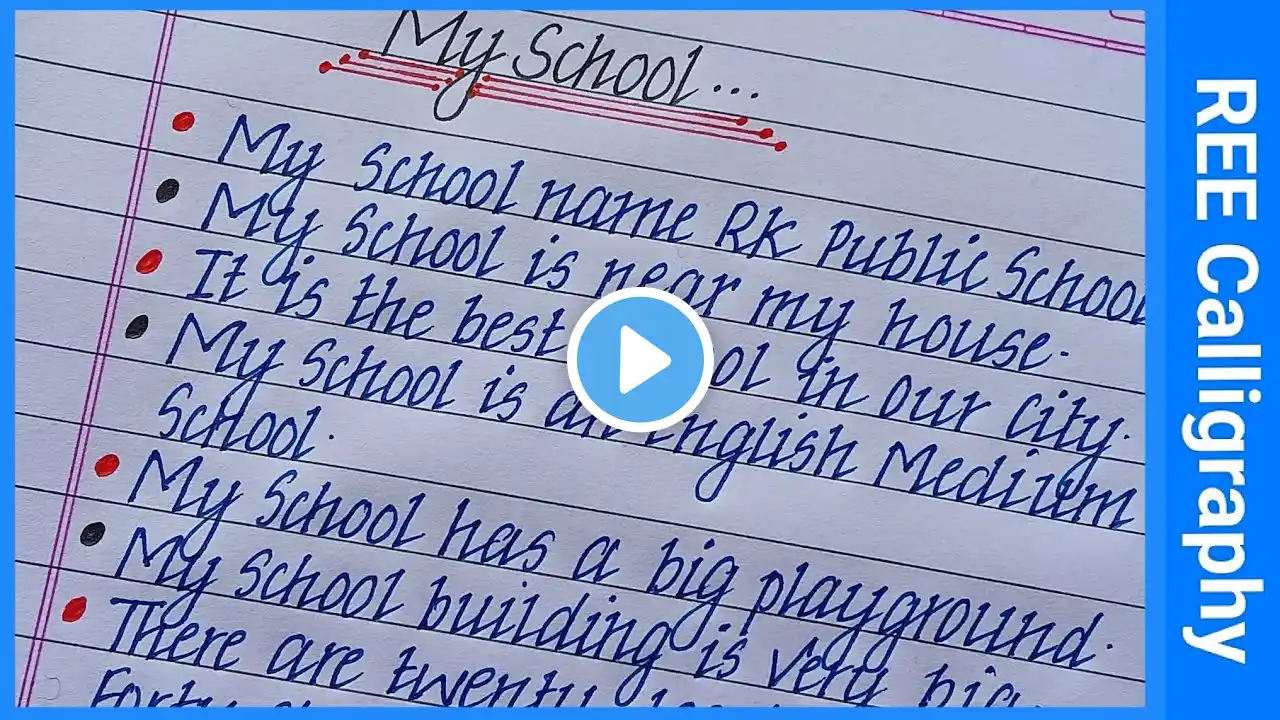 My School...
My School name RK Public School
My School is near my house.
It is the best in our city.
My School is an English Medium
School.
My School has a big playground.
My School building is very big
There are twenty
Forty
REE Calligraphy